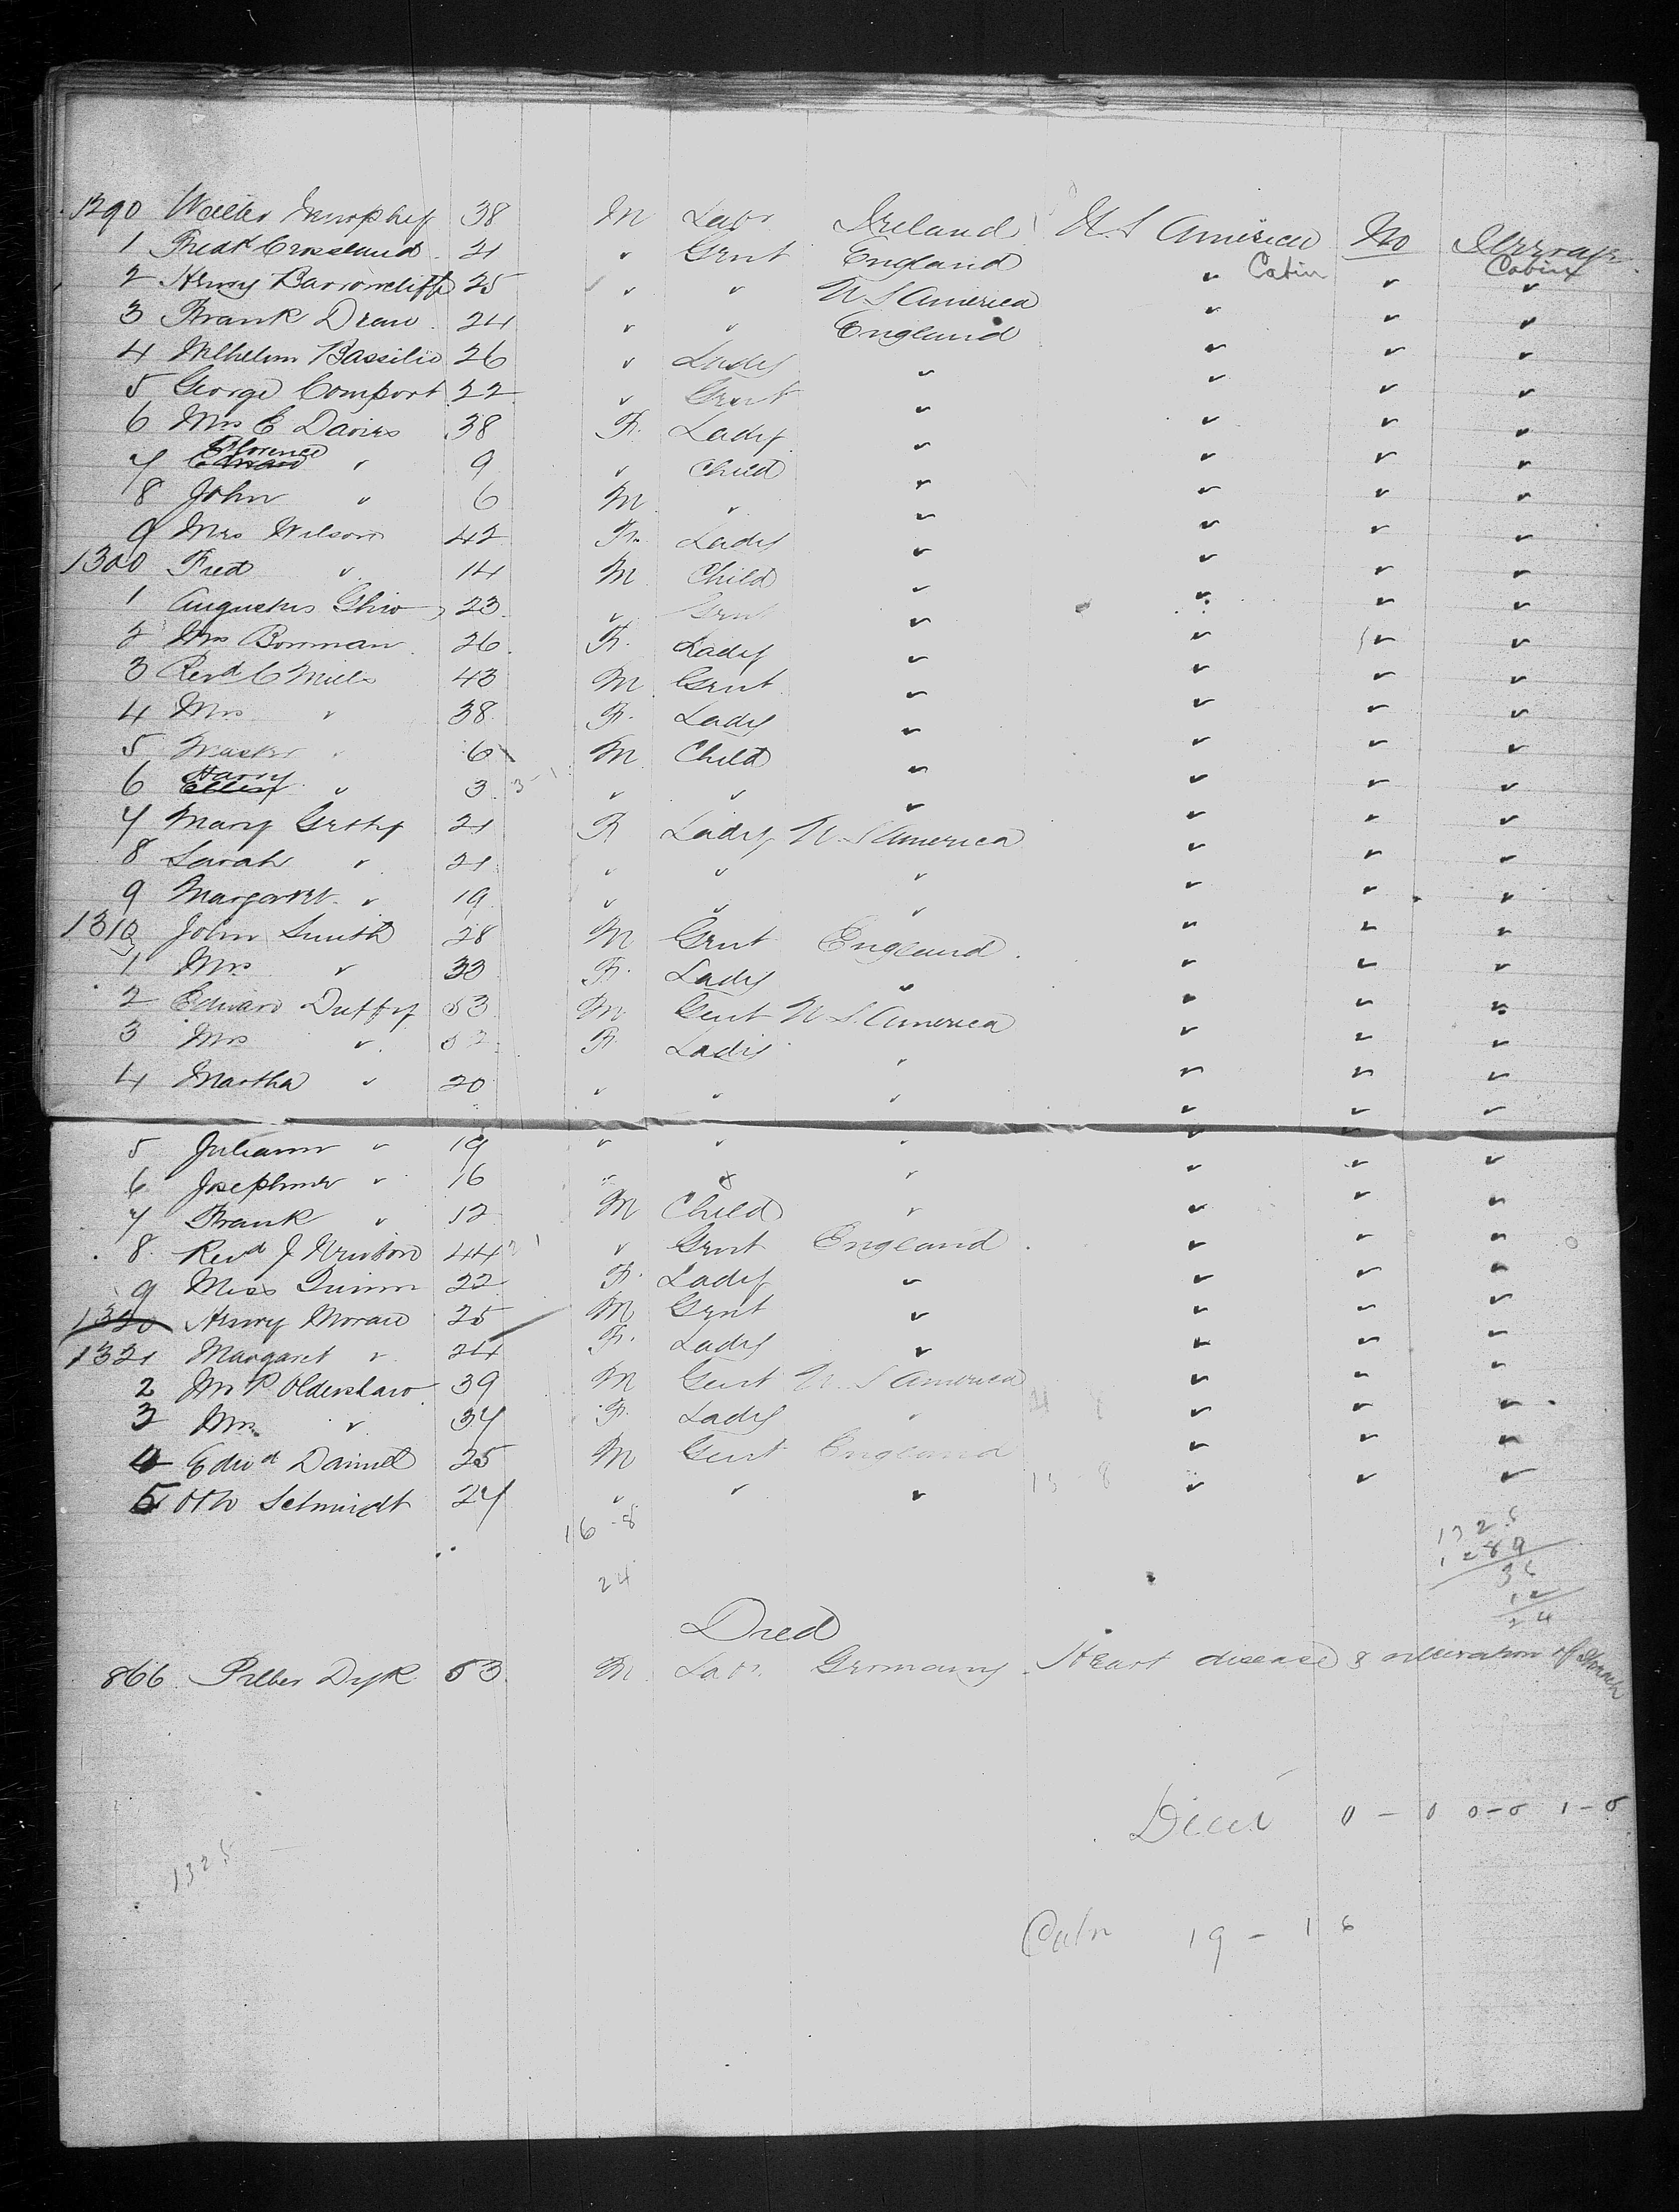 1290 Walter Murphy 38 M Labr Ireland U S America No Steerage
1 Fredk Crossland 21 " Gent England " Cabin " Cabin
2 Henry Barrowcliffe 25 " " U S America " " "
3 Frank Drew 24 " " England " " "
4 Wilhelm Bassilie 26 " Lady " " " "
5 George Comport 22 " Gent " " " "
6 Mrs C Davies 38 F. Lady " " " "
7 Florence " 9 " Child " " " "
8 John " 6 M " " " " "
9 Mrs Wilson 42 F. Lady " " " "
1300 Fred " 14 M Child " " " "
1 Augustus 23 " Gent " " " "
2 Mrs Bowman 26 F. Lady " " " "
3 Revd C Mills 43 M Gent " " " "
4 Mrs " 38 F. Lady " " " "
5 Master " 6 M Child " " " "
6 Harry " 3 " " " " " "
7 Mary Gethy 21 F Lady U. S America " " "
8 Sarah " 21 " " " " " "
9 Margaret " 19 " " " " " "
1310 John Smith 28 M Gent England " " "
1 Mrs " 33 F. Lady " " " "
2 Edward Duffy 53 M Gent U S. America " " "
3 Mrs " 52 F Lady " " " "
4 Martha " 20 " " " " " "
5 Juliann " 19 " " " " " "
6 Josephine " 16 " " " " " "
7 Frank " 12 M Child " " " "
8 Revd J Newton 44 " Gent England " " "
9 Miss Quinn 22 F. Lady " " " "
1320 Henry Moran 25 M Gent " " " "
1321 Margaret " 24 F. Lady " " " "
2 Mr P Oldershaw 39 M Gent U. S America " " "
3 Mrs " 37 F. Lady " " " "
4 Edwd Daniel 25 M Gent England " " "
5 Otto Schmidt 27 " " " " " "
16-8
24
1325
1289
36
12
24
Died
866 Dyk 53 M. Labr. Germany Heart disease & ulceration of Stomach
Died 0 - 0 0-0 1-0
1325
Cabin 19 - 16